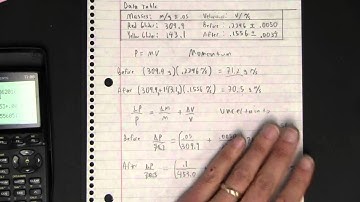 Data Table
Masses: m/g ± .05 Velocities V/%
Red Glider: 309.9 Before .2296 ± .0050
Yellow Glider: 143.1 After .1556 ± .0039
P = MV Momentum
Before (309.9 g)(.2296 %) = 71.2 g%
After (309.9+143.1)(.1556 %) = 70.5 g%
ΔP/P = ΔM/M + ΔV/V Uncertainty
Before ΔP/ = (.05/309.9 +
After ΔP/ = (.1/